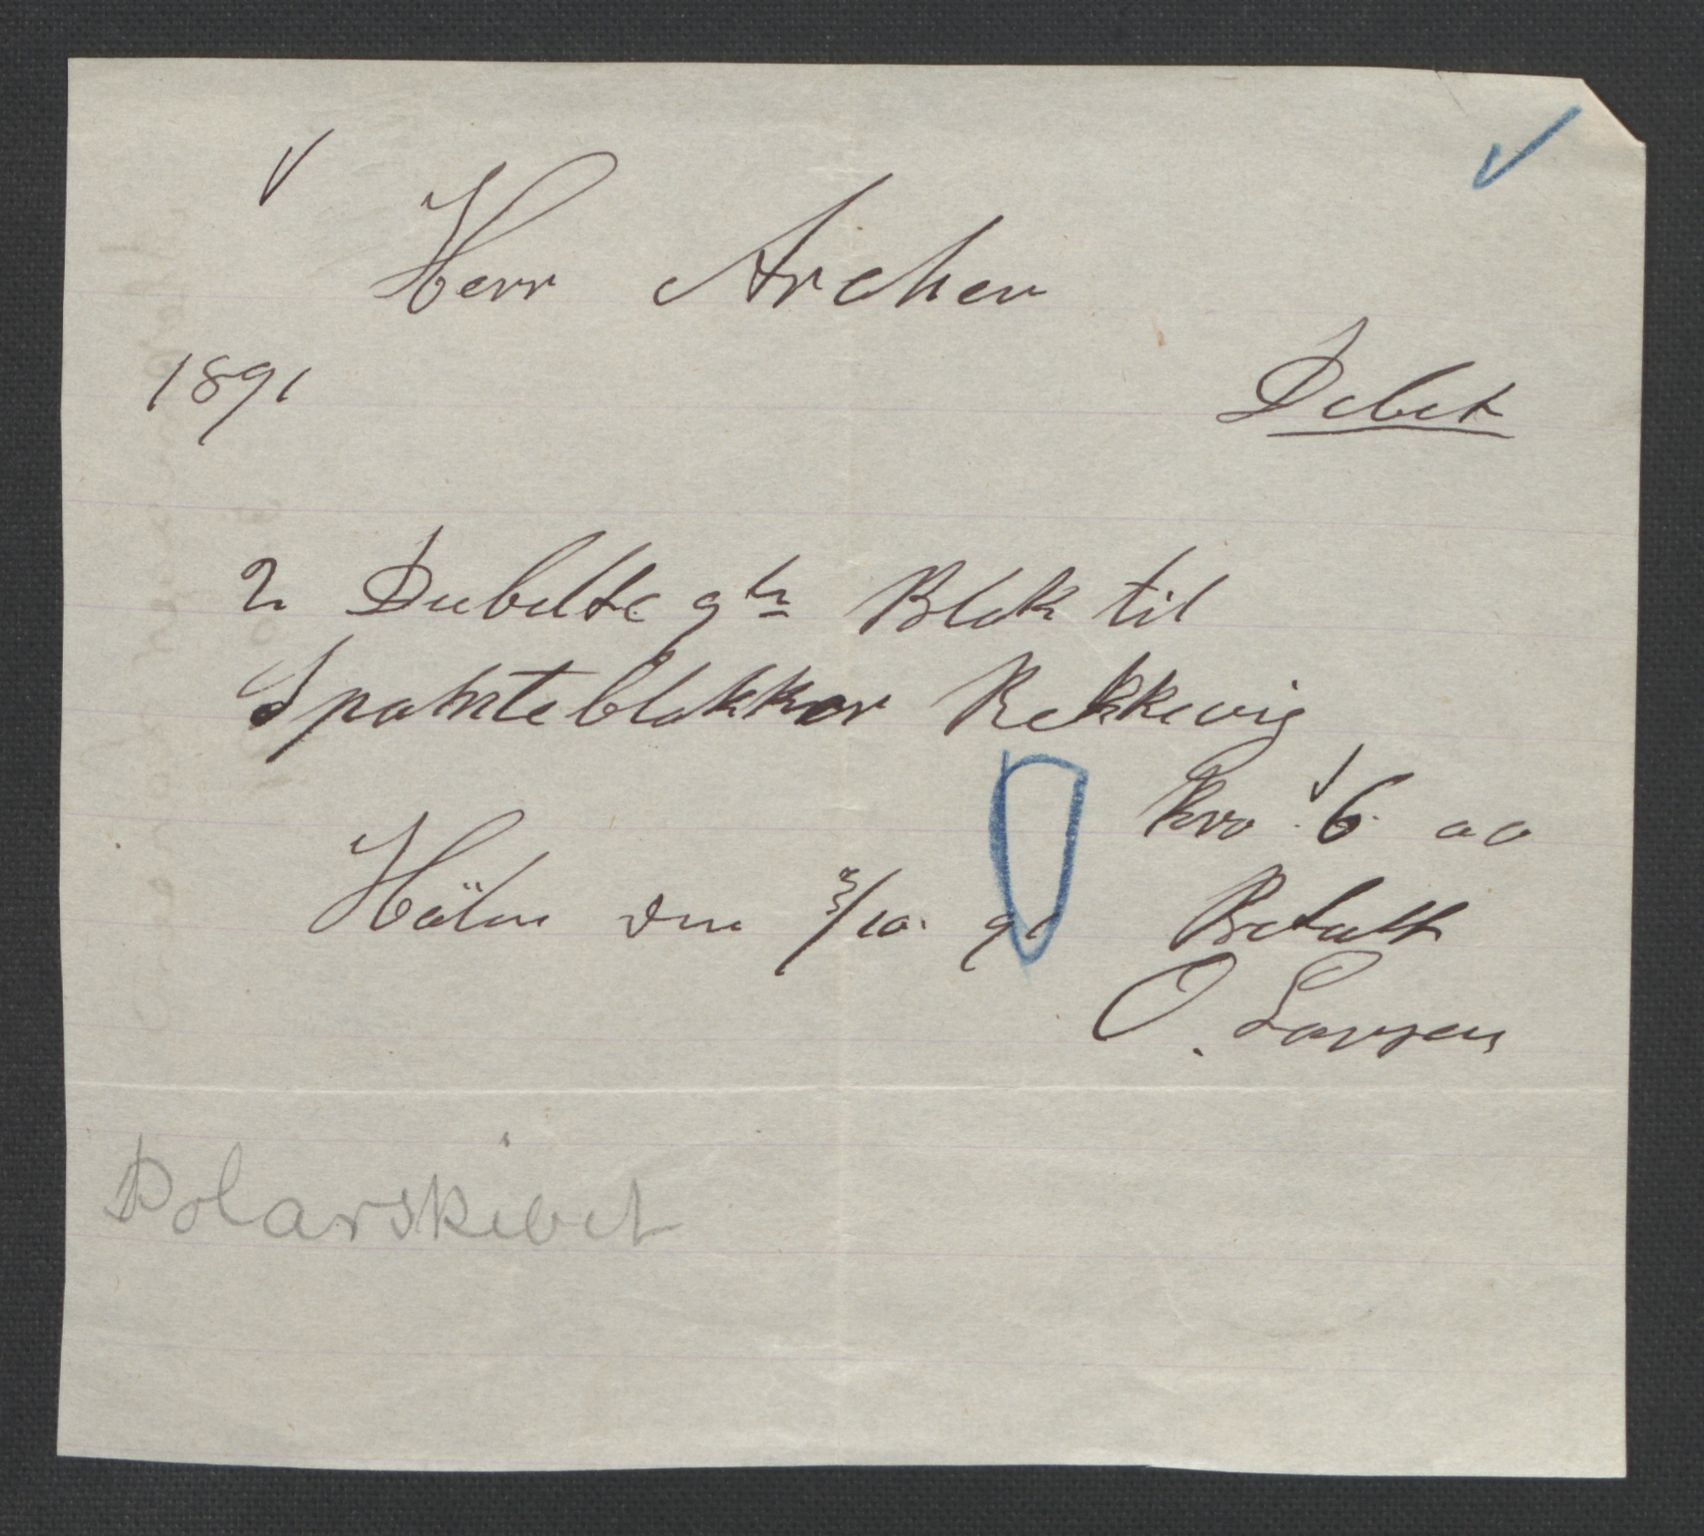 Herr Archer
1891
Debet
2 Dubelte 9tr Blok til
Spanteblokker Rekkevig
Kro 6. 00
den 3/10. 91 Betalt
O. Larsen
Polarskibet